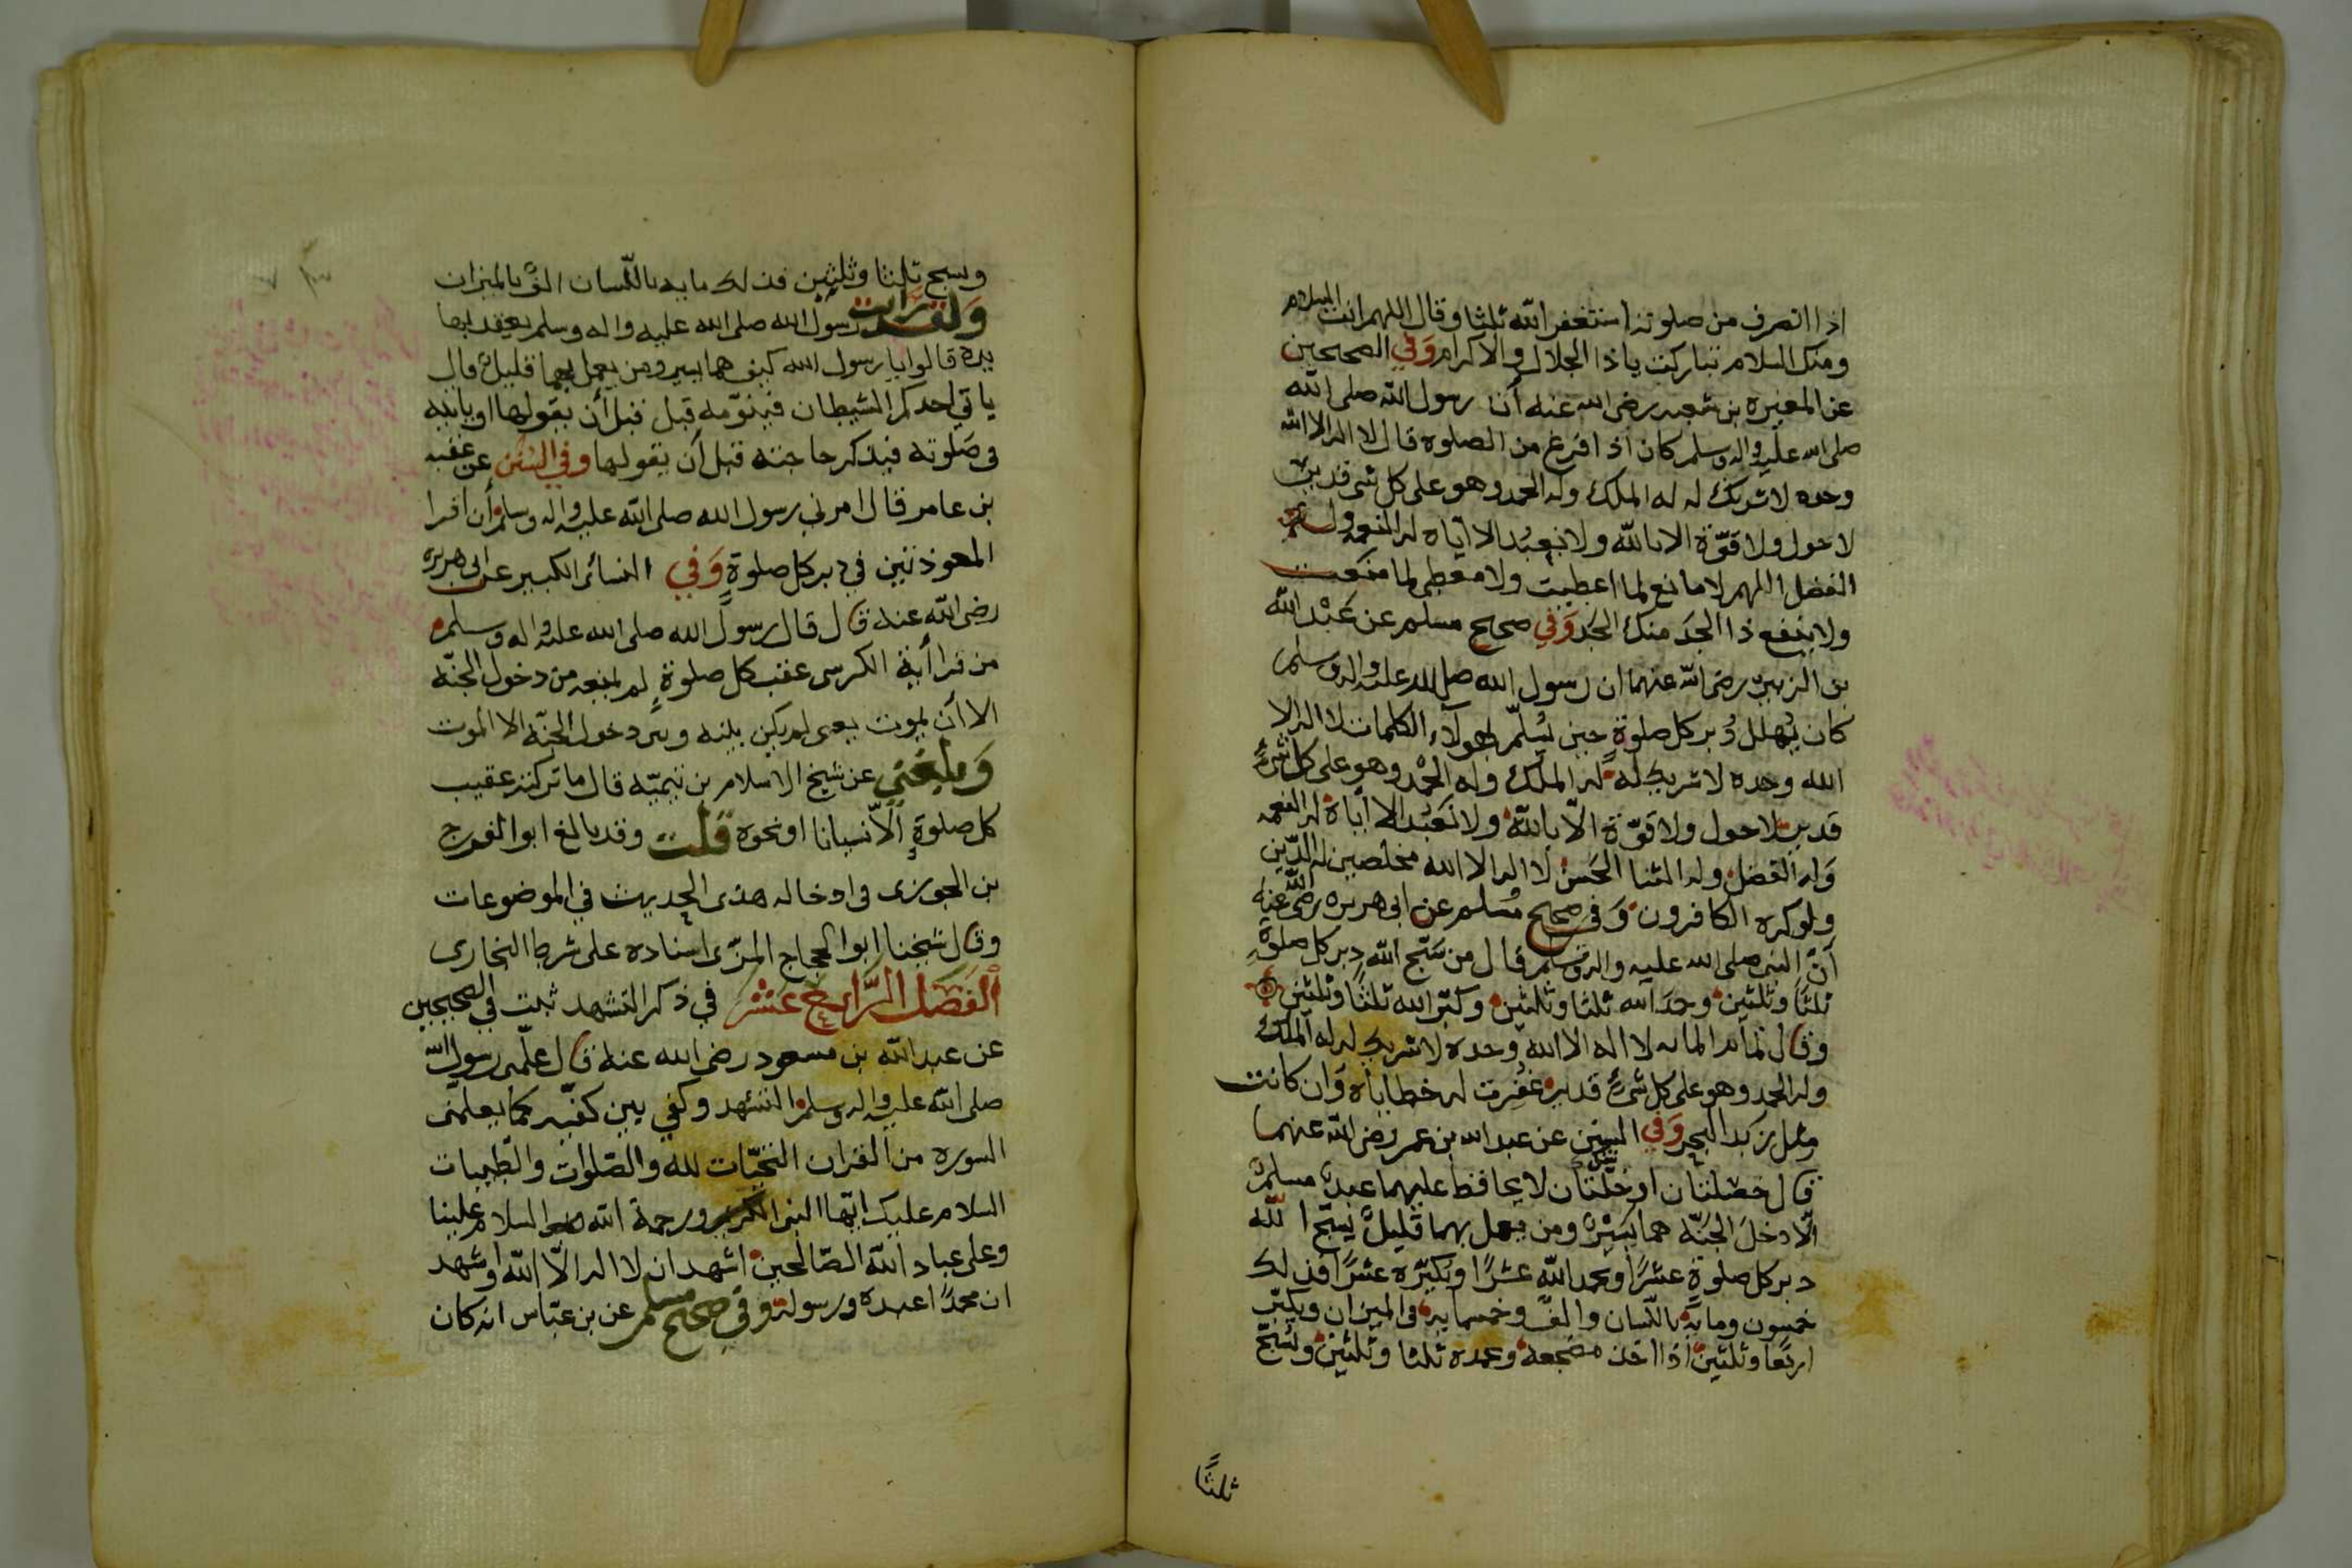 اذا انصرف من صلوته استغفر الله ثلثا وقال اللهم انت السلام
ومنك السلام تباركت ياذا الجلال والاكرام وفي الصحيحين
عن المغيره بن شعبه رضى الله عنه أن رسول الله صلى الله
صلى الله عليه واله وسلم كان اذا فرغ من الصلوه قال لا اله الا الله
وحده لا شريك له له الملك وله الحمد وهو على كل شى قدير
لا حول ولا قوّة الا بالله ولا نعبُد الا اياه له النعمه وله
الفضل اللهم لا مانع لما اعطيت ولا معطى لما منعت
ولا ينفع ذا الجد منك الجَد وَفي صحيح مسلم عن عَبْد الله
بن الزبير رضى الله عنهما ان رسول الله صلى الله عليه واله وسلم
كان يُهلل دُبر كل صلوةٍ حين يُسلّم بهولآء الكلمات لا اله الا
الله وحده لا شريك له له الملك وله الحمْد وهو على كل شىءٍ
قدير لا حول ولا قوّة الّا بالله ولا نَعبُد الا ايّاه له النعمه
وَله الفضل وله الثنا الحَسن لا اله الا الله مخلصين له الدّين
ولو كره الكافرون وَفي صحيح مُسلم عن ابى هريره رضى الله عنه
أنّ النبى صلى الله عليه واله وسلم قال من سَبّح الله دبر كل صلوةٍ
ثلثًا وثلثين وحمَد الله ثلثا وثلثين وكبّر الله ثلثًا وثلثين
وقال تمام المايه لا اله الا الله وحده لا شريك له له الملك
وله الحمد وهو على كل شىءٍ قدير غُفِرت له خطاياه وَان كانت
مثل زبد البحر وَفي السنن عن عبد الله بن عمر رضى الله عنهما
قال خصلتان او خلّتان لا يحافظ عليهما عبدٌ مسلمٌ
الّا دخلَ الجَنّه هما يَسِيْرٌ ومن يعمل بهما قليلٌ يُسبّح الله
دبر كل صلوةٍ عشرًا ويحمد الله عشرًا ويكبّره عشرًا فذلك
خمسون ومايةٌ باللّسان والفٌ وخمسمايه في الميزان ويكبّر
اربعًا وثلثين اذا اخذ مضجعه ويحمده ثلثا وثلثين ويُسَبّح
ثلثًا
وسبح ثلثا وثلثين فذلك مايه باللّسان الفٌ بالميزان
وَلقد رايت رسول الله صلى الله عليه واله وسلم يعقدها
بيده قالوا يا رسول الله كيف هما يسير ومن يعمل بهما قليلٌ قال
ياتي احدكم الشيطان فينوّمه قبل قبل أن يقولها او ياتيه
في صَلوته فيذكر حاجته قبل أن يقولها وفي السُنن عن عقبه
بن عامر قال امرني رسول الله صلى الله عليه واله وسلم أن اقرا
المعوذتين في دبر كل صلوةٍ وَفي النسائى الكبير عن ابى هريره
رضى الله عنه قال قال رسول الله صلى الله عليه واله وسلم
من قرا أية الكرسى عقب كل صلوةٍ لم يمنعه من دخول الجنّه
الا أن يموت يعنى لم يكن بينه وبين دخول الجنّه الا الموت
وَبلغني عن شيخ الاسلام بن تيميّه قال ما تركته عقيب
كل صلوةٍ الّا نسيانا او نحوه قلت وقد بالغ ابو الفرج
بن الجوزى فى ادخاله هذى الحديث في الموضوعات
وقال شيخنا ابوا الحجاج المزّى اسناده على شرط البخارى
الفَصل الرَّابع عَشر في ذكر التشهد ثبت في الصحيحين
عن عبد الله بن مسعود رضى الله عنه قال علّمنى رسول الله
صلى الله عليه واله وسلم التشهد وكفي بين كفيه كما يعلّمنى
السوره من القران التحيّات لله والصّلوات والطيبات
السلام عليك ايّها النبى ورحمة الله السلام علينا
وعلى عباد الله الصّالحين اشهد ان لا اله الّا الله واشهد
ان محمدًا عبده ورسوله وفي صحيح مسلم عن بن عبّاس انه كان